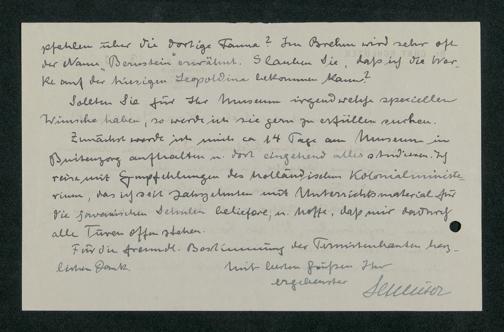 pfehlen über die dortige Fauna? Im Brehm wird sehr oft
der Name „Bernstein" erwähnt. Glauben Sie, daß ich die Wer-
ke auf der hiesigen Leopoldina bekommen kann?
Sollten Sie für Ihr Museum irgendwelche speziellen
Wünsche haben, so werde ich sie gern zu erfüllen suchen.
Zunächst werde ich mich ca 14 Tage am Museum in
Buitenzorg aufhalten u. dort eingehend alles studieren. Ich
reise mit Empfehlungen des holländischen Kolonialministe-
riums, das ich seit Jahrzehnten mit Unterrichtsmaterial für
die javanischen Schulen beliefere, u. hoffe, daß mir dadurch
alle Türen offen stehen.
Für die freundl. Bestimmung der Termitenbauten herz-
lichen Dank.
Mit besten Grüßen Ihr
ergebenster